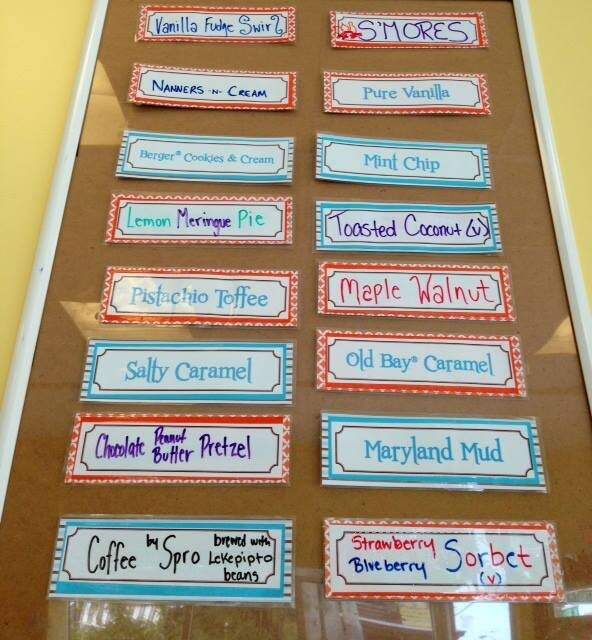 Vanilla Fudge Swirl
S'MORES
NANNERS -N- CREAM
Pure Vanilla
Berger® Cookies & Cream
Mint Chip
Lemon Meringue Pie
Toasted Coconut (v)
Pistachio Toffee
Maple Walnut
Salty Caramel
Old Bay® Caramel
Chocolate Peanut
Butter Pretzel
Maryland Mud
Coffee by Spro brewed with
Lekepipto
beans
Strawberry
Blueberry Sorbet
(v)